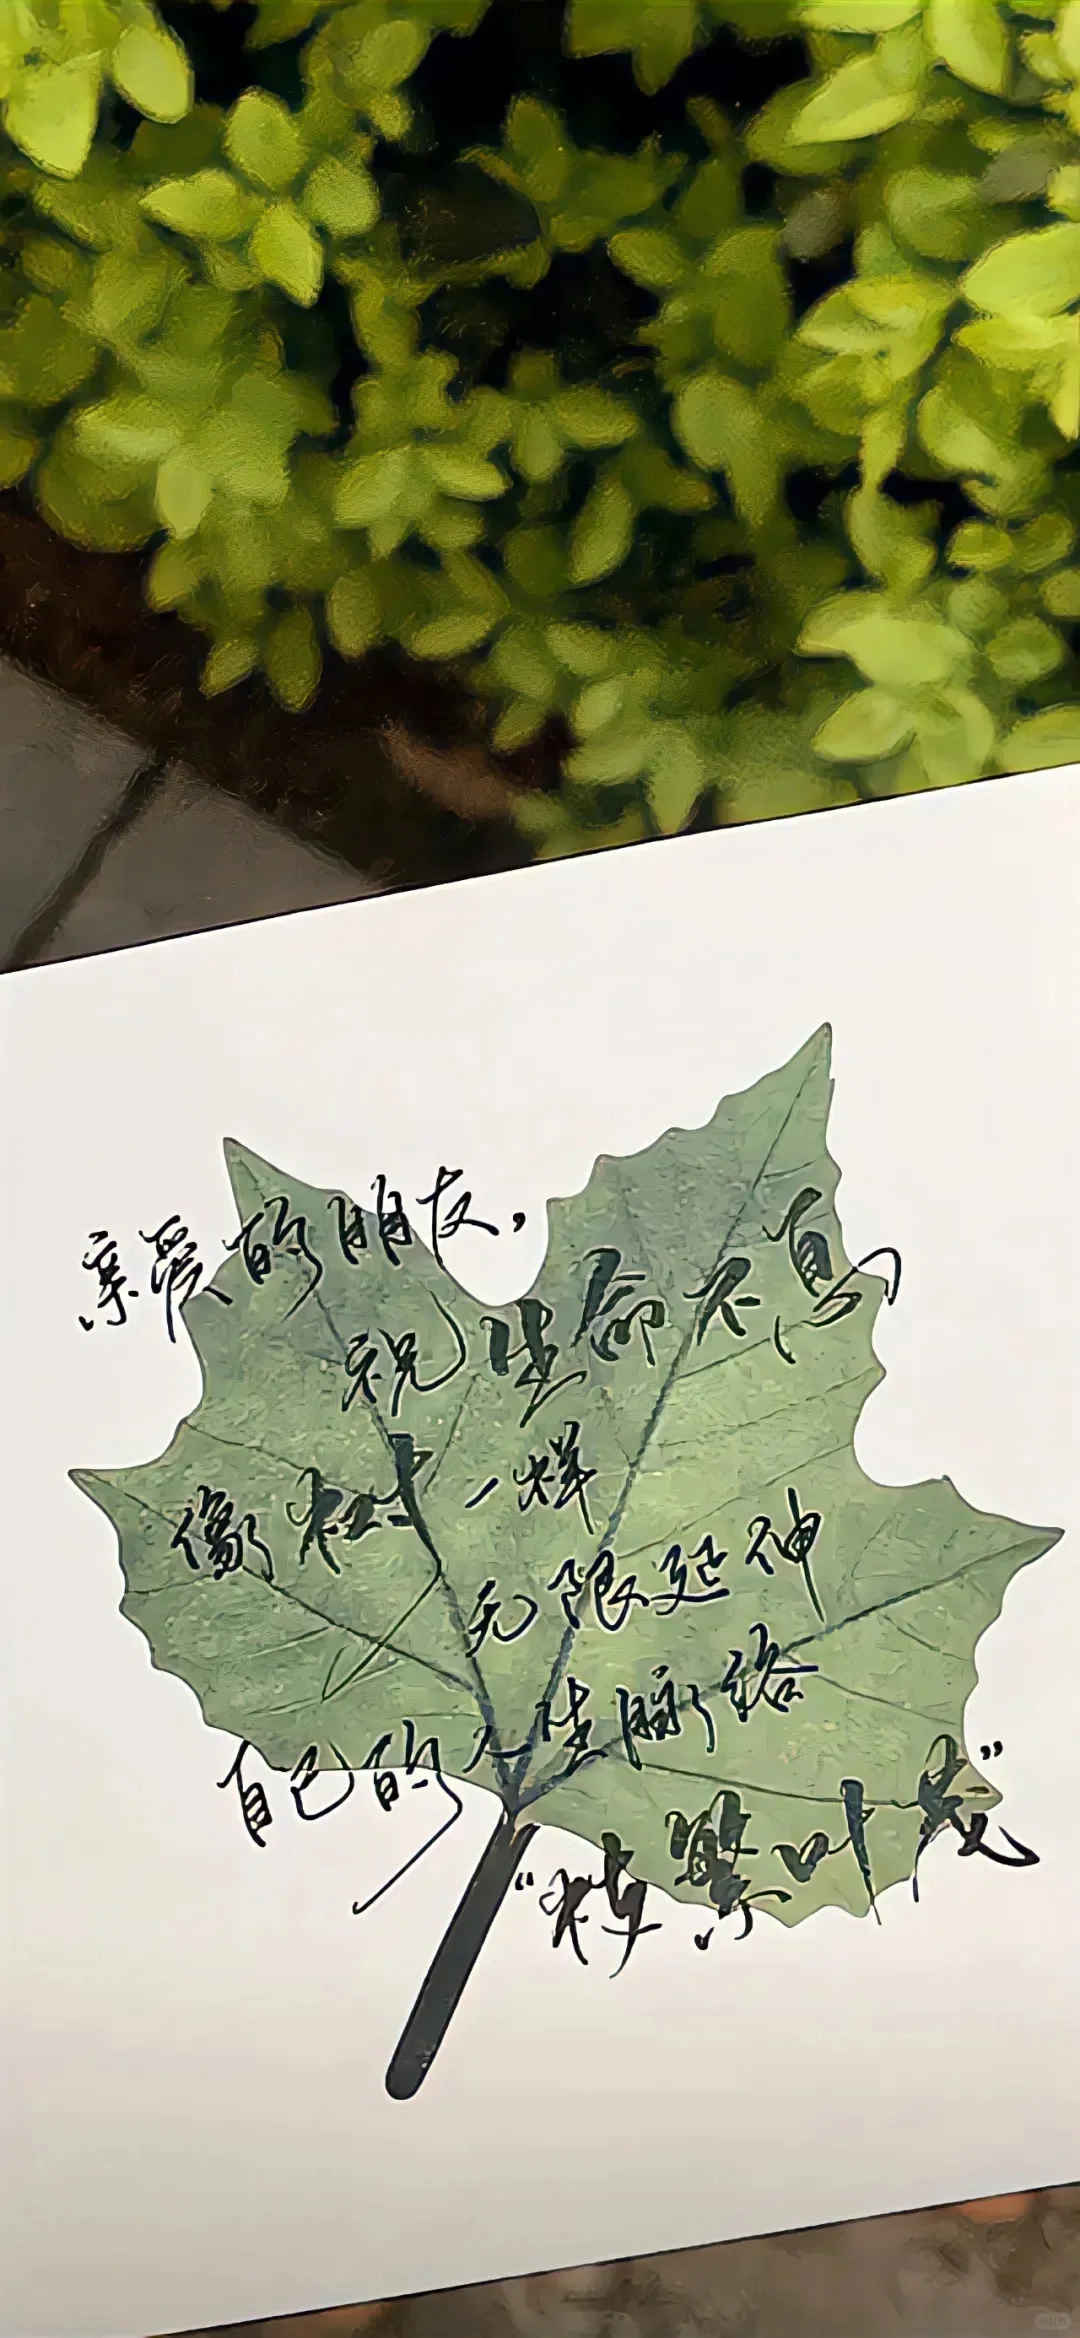 亲爱的朋友，
祝生命不息
像树一样
无限延伸
自己的人生脉络
“枝繁叶茂”